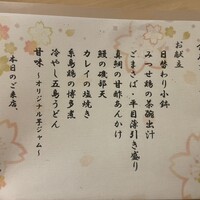 お献立
日替わり小鉢
みつせ鶏の茶碗出汁
ごまさば・平目薄引き盛り
真鯛の甘酢あんかけ
鰻の磯部天
カレイの塩焼き
糸島鶏の博多煮
冷やし五島うどん
甘味 ～オリジナル芋ジャム～
本日のご来店、